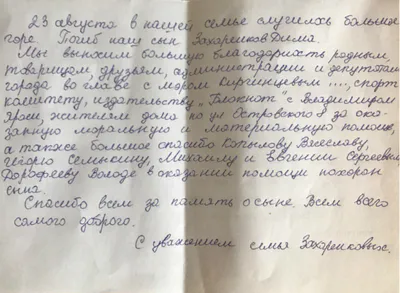 23 августа в нашей семье случилось большое
горе. Погиб наш сын Захаренков Дима.
Мы выносим большую благодарность родным,
товарищам, друзьям, администрации и депутатам
города во главе с мэром Киргинцевым ...., спорт
комитету, издательству „Блокнот" с Владимиром
Ярош, жителям дома по ул Островского 8 за ока-
занную моральную и материальную помощь,
а также большое спасибо Копылову Вячеславу,
Семыкину, Михаилу и Евгении Сергеевым
Дорофееву Володе в оказании помощи похорон
сына.
Спасибо всем за память о сыне. Всем всего
самого доброго.
С уважением семья Захаренковых.